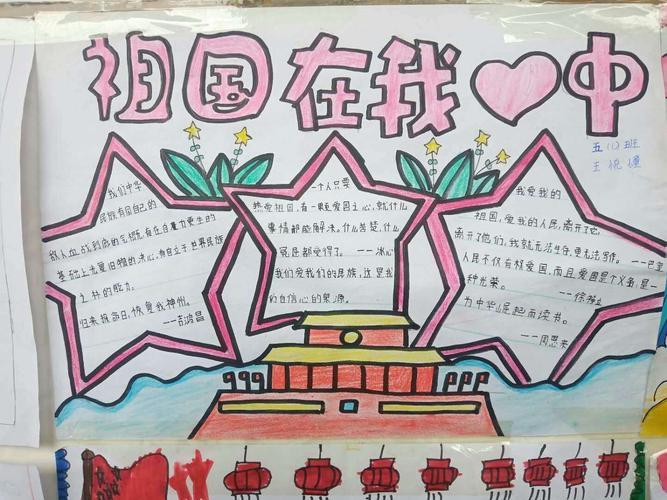 祖国在我♡中
五(1)班
我们中华
民族有同自己的
敌人血战到底的气概,有在自力更生的
基础上光复旧物的决心,有自立于世界民族
之林的能力。
归来报命日,恢复我神州。
——吉鸿昌
一个人只要
热爱祖国,有一颗爱国之心,就什么
事情都能解决,什么苦楚,什么
冤屈都受得了。——冰心
我们爱我们的民族,这是我
们自信心的泉源。
我爱我的
祖国,爱我的人民,离开了它,
离开了他们,我就无法生存,更无法写作。——巴金
人民不仅有权爱国,而且爱国是个义务,是一
种光荣。——徐特立
为中华崛起而读书。
——周恩来